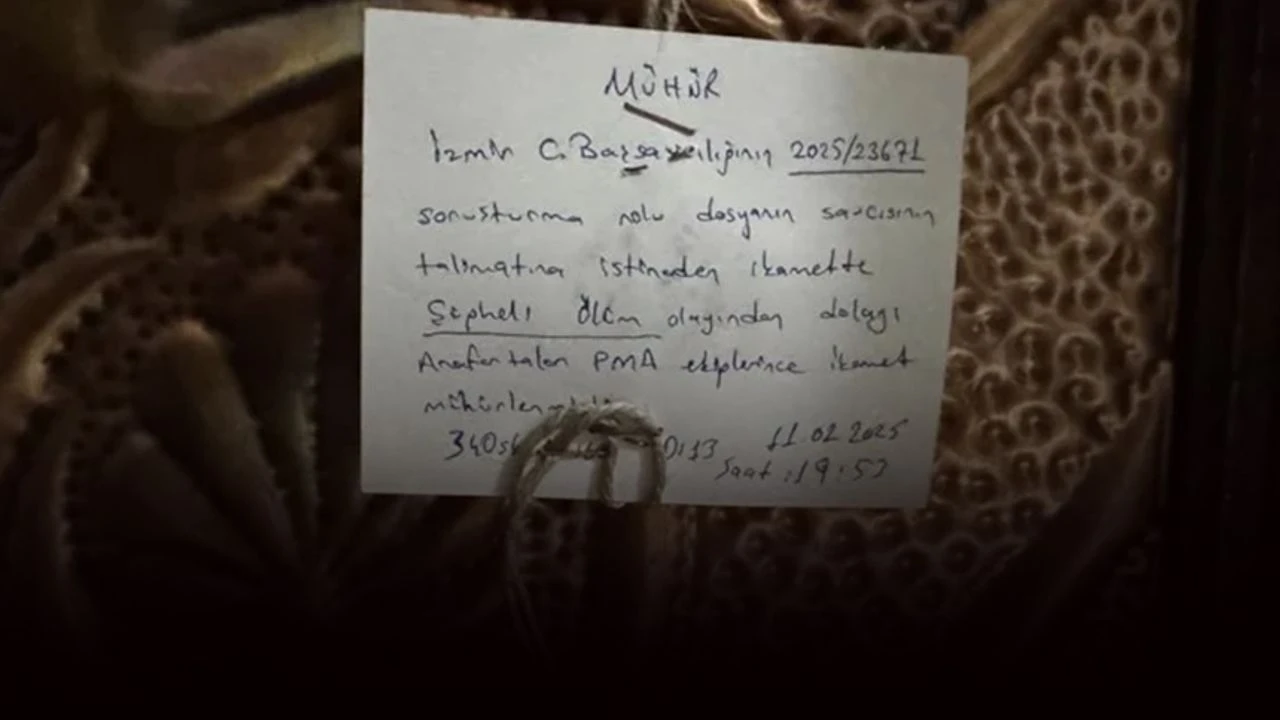 MÜHÜR
İzmir C. Başsavcılığının 2025/23671
soruşturma nolu dosyanın savcısının
talimatına istineden ikamette
Şüpheli Ölüm olayından dolayı
Anafartalar PMA ekiplerince ikamet
11.02.2025
Saat :19:53